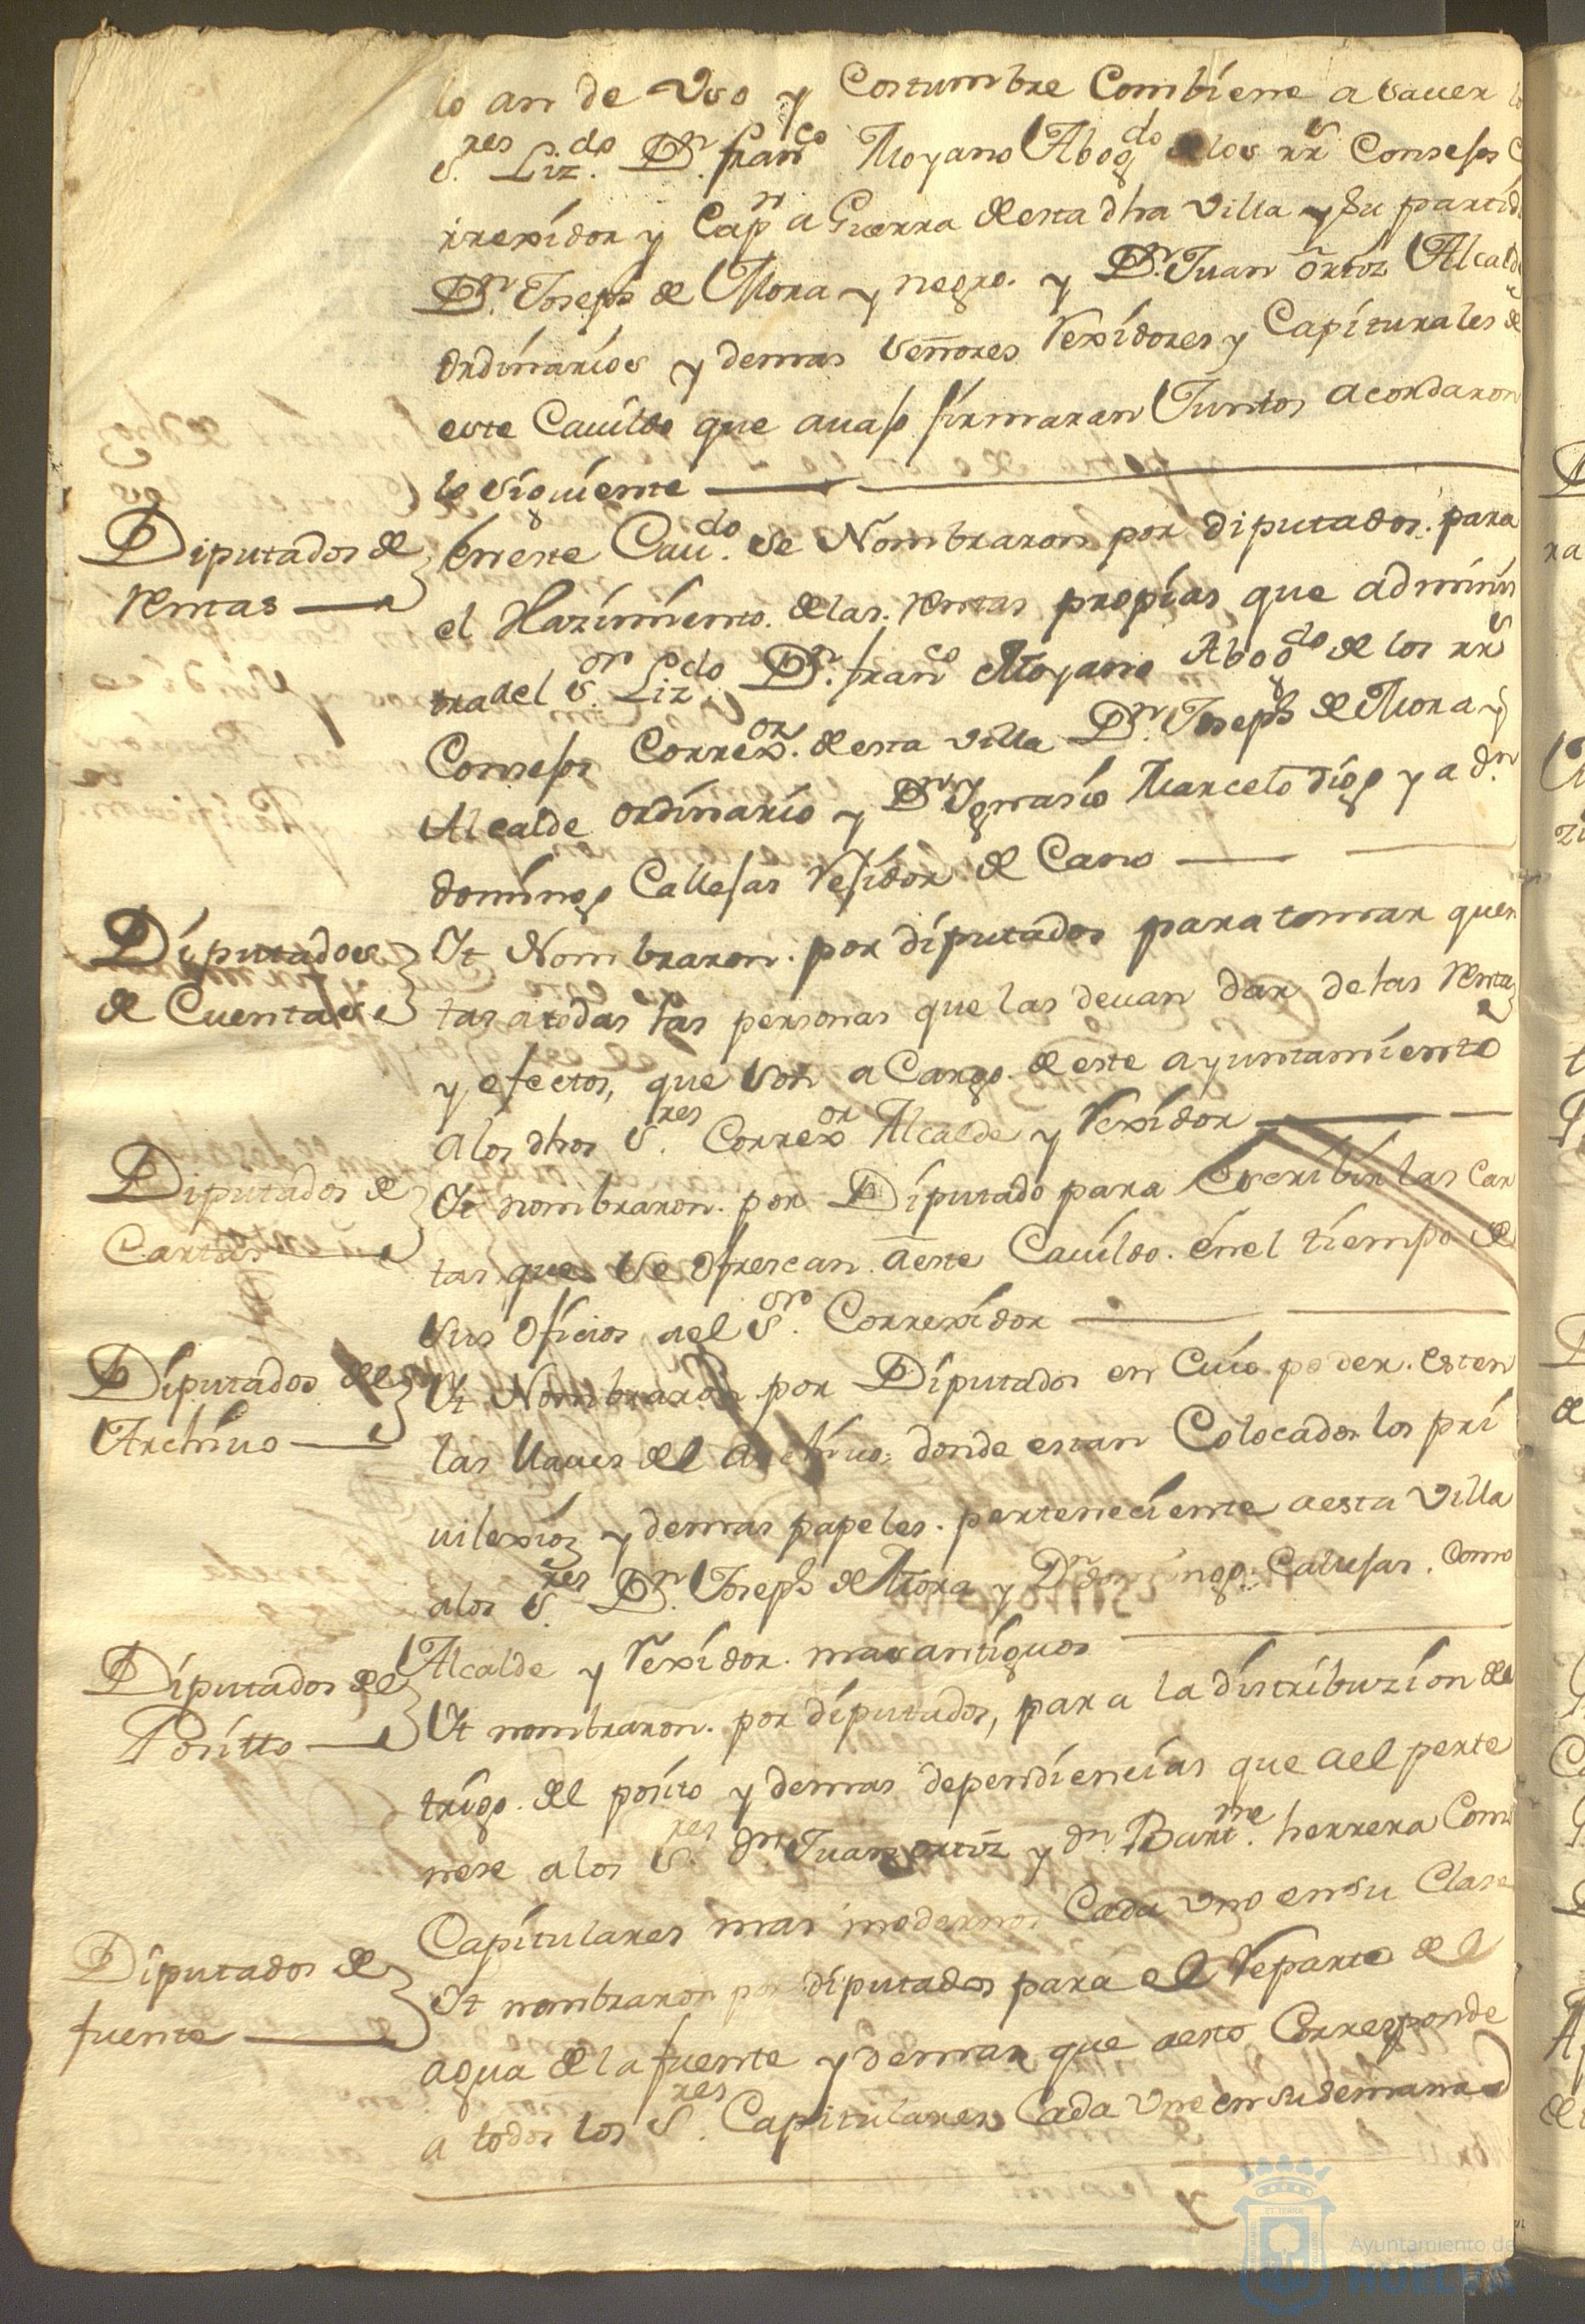 lo an de Vso y Costumbre Combiene a sauer
S.res Liz.do D.n fran.co Moyano Abog.do de los R.s Consejos
rrexidor y Cap.n a Guerra de esta dha Villa y su partid
D.n Joseph de Mora y negro. y D.n Juan ortiz Alcald
ordinarios y demas señores Rexidores y Capiturales de
este Cauildo que auajo firmaran Juntos acordaron
lo siguiente
Diputados de
Rentas
En este Cau.do se Nombraron por diputados. para
el Hazimiento. de las. Rentas propias que adminis
tra ael S.or Liz.do D.n fran.co Moyano Abog.do de los R.s
Consejos Correx.or de esta villa D.n Joseph de Mora y
Alcalde ordinario y D.n Ygnasio Marcelo digo y a d.n
domingo Callejas Rejidor de Cano
Diputados
de Cuentas
It Nombraron. por diputados para tomar quen
tas a todas las personas que las deuan dar de las Rentas
y efectos, que son a Cargo. de este ayuntamiento
a los dhos S.res Correx.or Alcalde y Rexidor
Diputados de
Cartas
It nombraron. por Diputado para Escribir las Car
tas que se ofrescan a este Cauildo. en el tiempo de
sus oficios ael S.or Correxidor
Diputados del
Archiuo
It Nombraron por Diputados en Cuio poder. esten
las llaues del Archiuo. donde estan Colocados los pri
uilexios y demas papeles. perteneciente a esta Villa
a los S.res D.n Joseph de Mora y D.n domingo. Callejas. Como
Alcalde y Rexidor. mas antiguos
Diputados del
Positto
It nombraron. por diputados, para la distribuzion del
trigo. del posito y demas dependiencias que a el perte
nese a los S.res d.n Juan ortiz y d.n Bart.me herrera Como
Capitulares mas modernos Cada vno en su Clase
Diputados de
fuente
It nombraron por diputados para el Reparto del
agua de la fuente y demas que a esto Corresponde
a todos los S.res Capitulares Cada vno en su semana
Ayuntamiento de
HUELVA